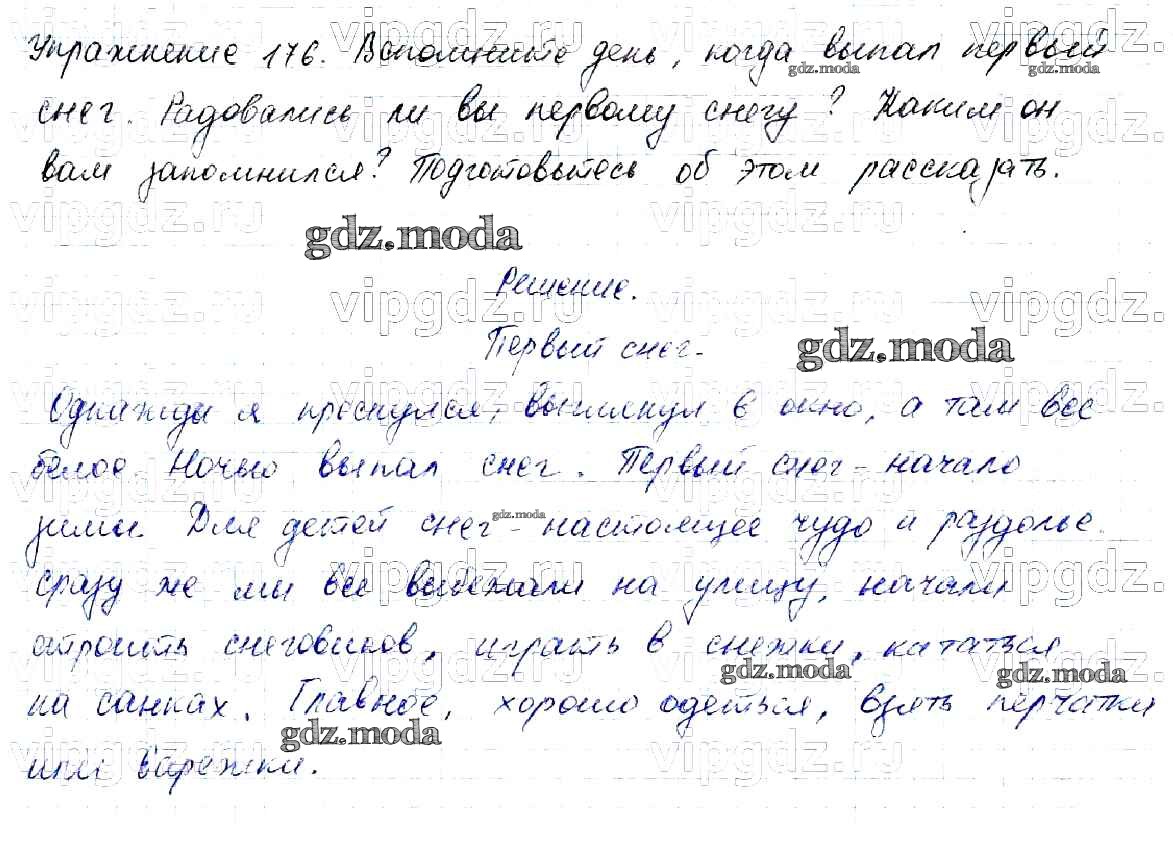 Упражнение 176. Вспомните день, когда выпал первый
снег. Радовались ли вы первому снегу? Каким он
вам запомнился? Подготовьтесь об этом рассказать.
gdz.moda
Решение.
Первый снег.
Однажды я проснулся, выглянул в окно, а там все
белое. Ночью выпал снег. Первый снег - начало
зимы. Для детей снег - настоящее чудо и раздолье.
сразу же мы все выбежали на улицу, начали
строить снеговиков, играть в снежки, кататься
на санках. Главное, хорошо одеться, взять перчатки
или варежки.